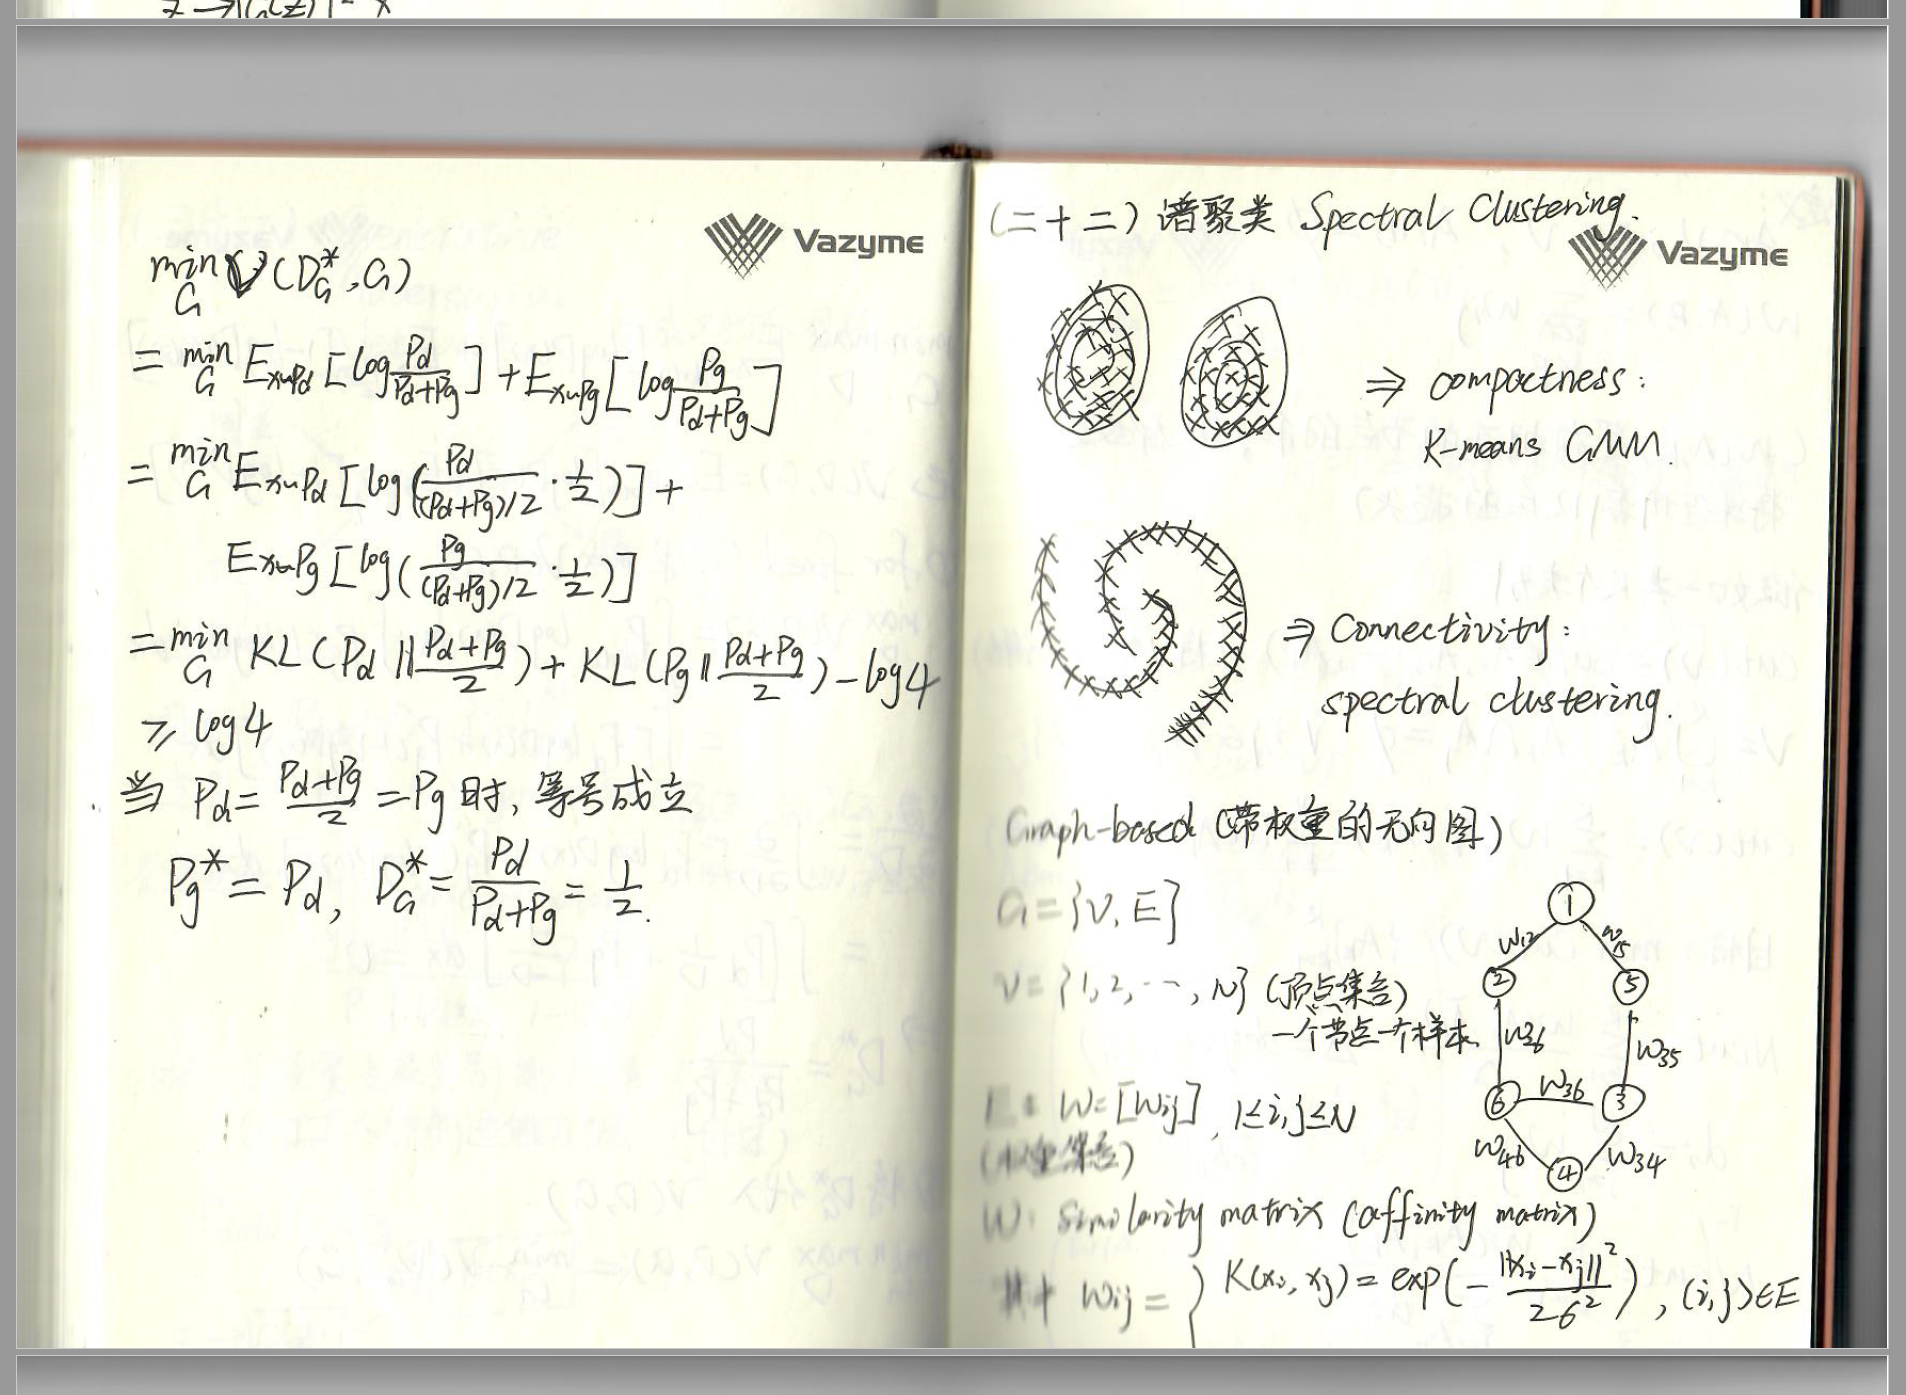 Vazyme
min V(D_G^*, G)
G
= min E_{x~Pd}[log Pd/(Pd+Pg)] + E_{x~Pg}[log Pg/(Pd+Pg)]
G
= min E_{x~Pd}[log(Pd/((Pd+Pg)/2) · 1/2)] +
G
E_{x~Pg}[log(Pg/((Pd+Pg)/2) · 1/2)]
= min KL(Pd || (Pd+Pg)/2) + KL(Pg || (Pd+Pg)/2) - log4
G
≥ log4
当 Pd = (Pd+Pg)/2 = Pg 时, 等号成立
Pg^* = Pd, D_G^* = Pd/(Pd+Pg) = 1/2.
(二十二) 谱聚类 Spectral Clustering.
Vazyme
⇒ compactness:
K-means GMM.
⇒ Connectivity:
spectral clustering.
Graph-based (带权重的无向图)
G = {V, E}
V = {1, 2, ..., N} (顶点集合)
一个节点一个样本
E: W = [wij], 1≤i,j≤N
(权重集合)
1
w12
w15
2
5
w26
w35
6
w36
3
w46
w34
4
W: similarity matrix (affinity matrix)
其中 wij = { K(xi, xj) = exp(- ||xi-xj||²/2σ²), (i,j)∈E